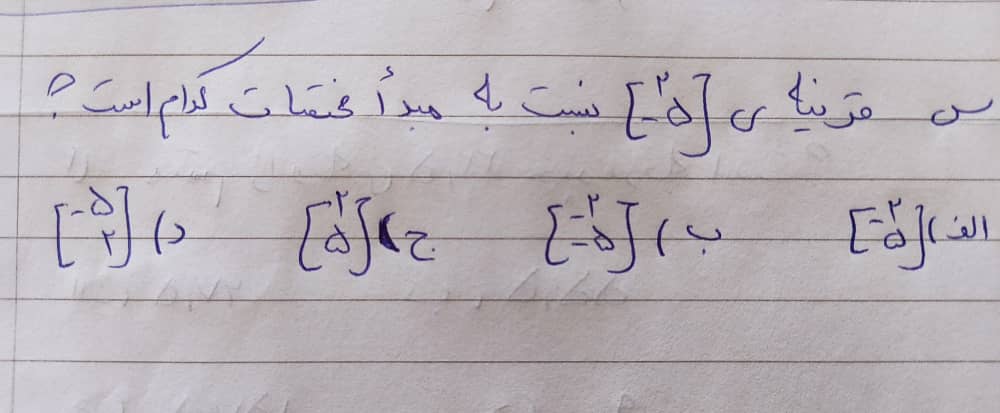 س قرینه ی [۲ -۵] نسبت به مبدأ مختصات کدام است؟
الف) [-۲ ۵] ب) [-۲ -۵] ج) [۲ ۵] د) [-۵ ۲]